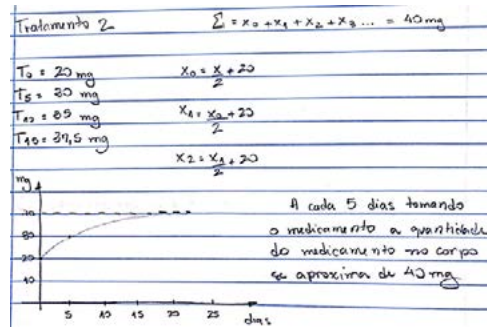 Tratamento 2
Σ = x0 + x1 + x2 + x3 ... = 40 mg
T0 = 20 mg
x0 = x/2 + 20
T5 = 30 mg
T10 = 35 mg
x1 = x0/2 + 20
T15 = 37,5 mg
x2 = x1/2 + 20
mg
30
20
10
5 10 15 20 25
dias
A cada 5 dias tomando
o medicamento a quantidade
do medicamento no corpo
se aproxima de 40 mg